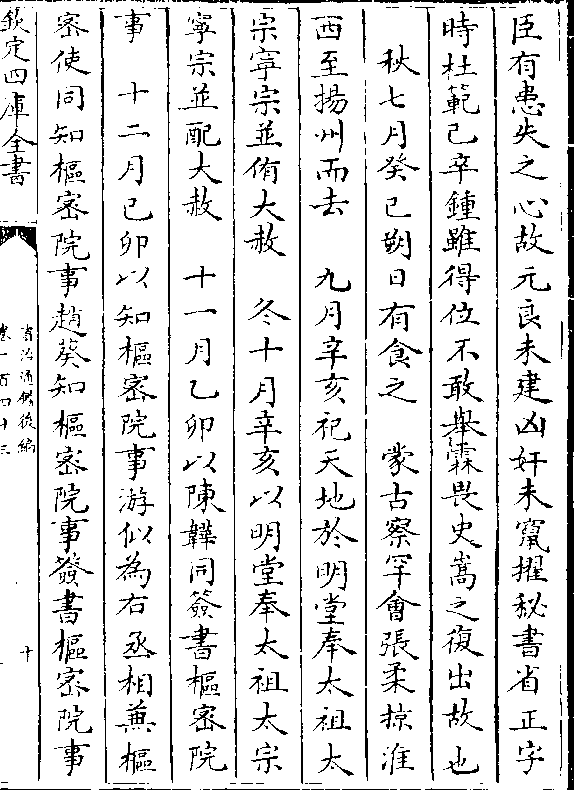 臣有患失之心故元良未建凶奸未竄擢秘書省正字
時杜範已卒鍾雖得位不敢舉霖畏史嵩之復出故也
秋七月癸巳朔日有食之　蒙古察罕會張柔掠淮
西至揚州而去　九月辛亥祀天地於明堂奉太祖太
宗寧宗並侑大赦　冬十月辛亥以明堂奉太祖太宗
寧宗並配大赦　十一月乙卯以陳韡同簽書樞密院
事　十二月己卯以知樞密院事游似為右丞相兼樞
密使同知樞密院事趙葵知樞密院事發書樞密院事
欽定四庫全書
資治通鑑後編
卷一百四十三
十